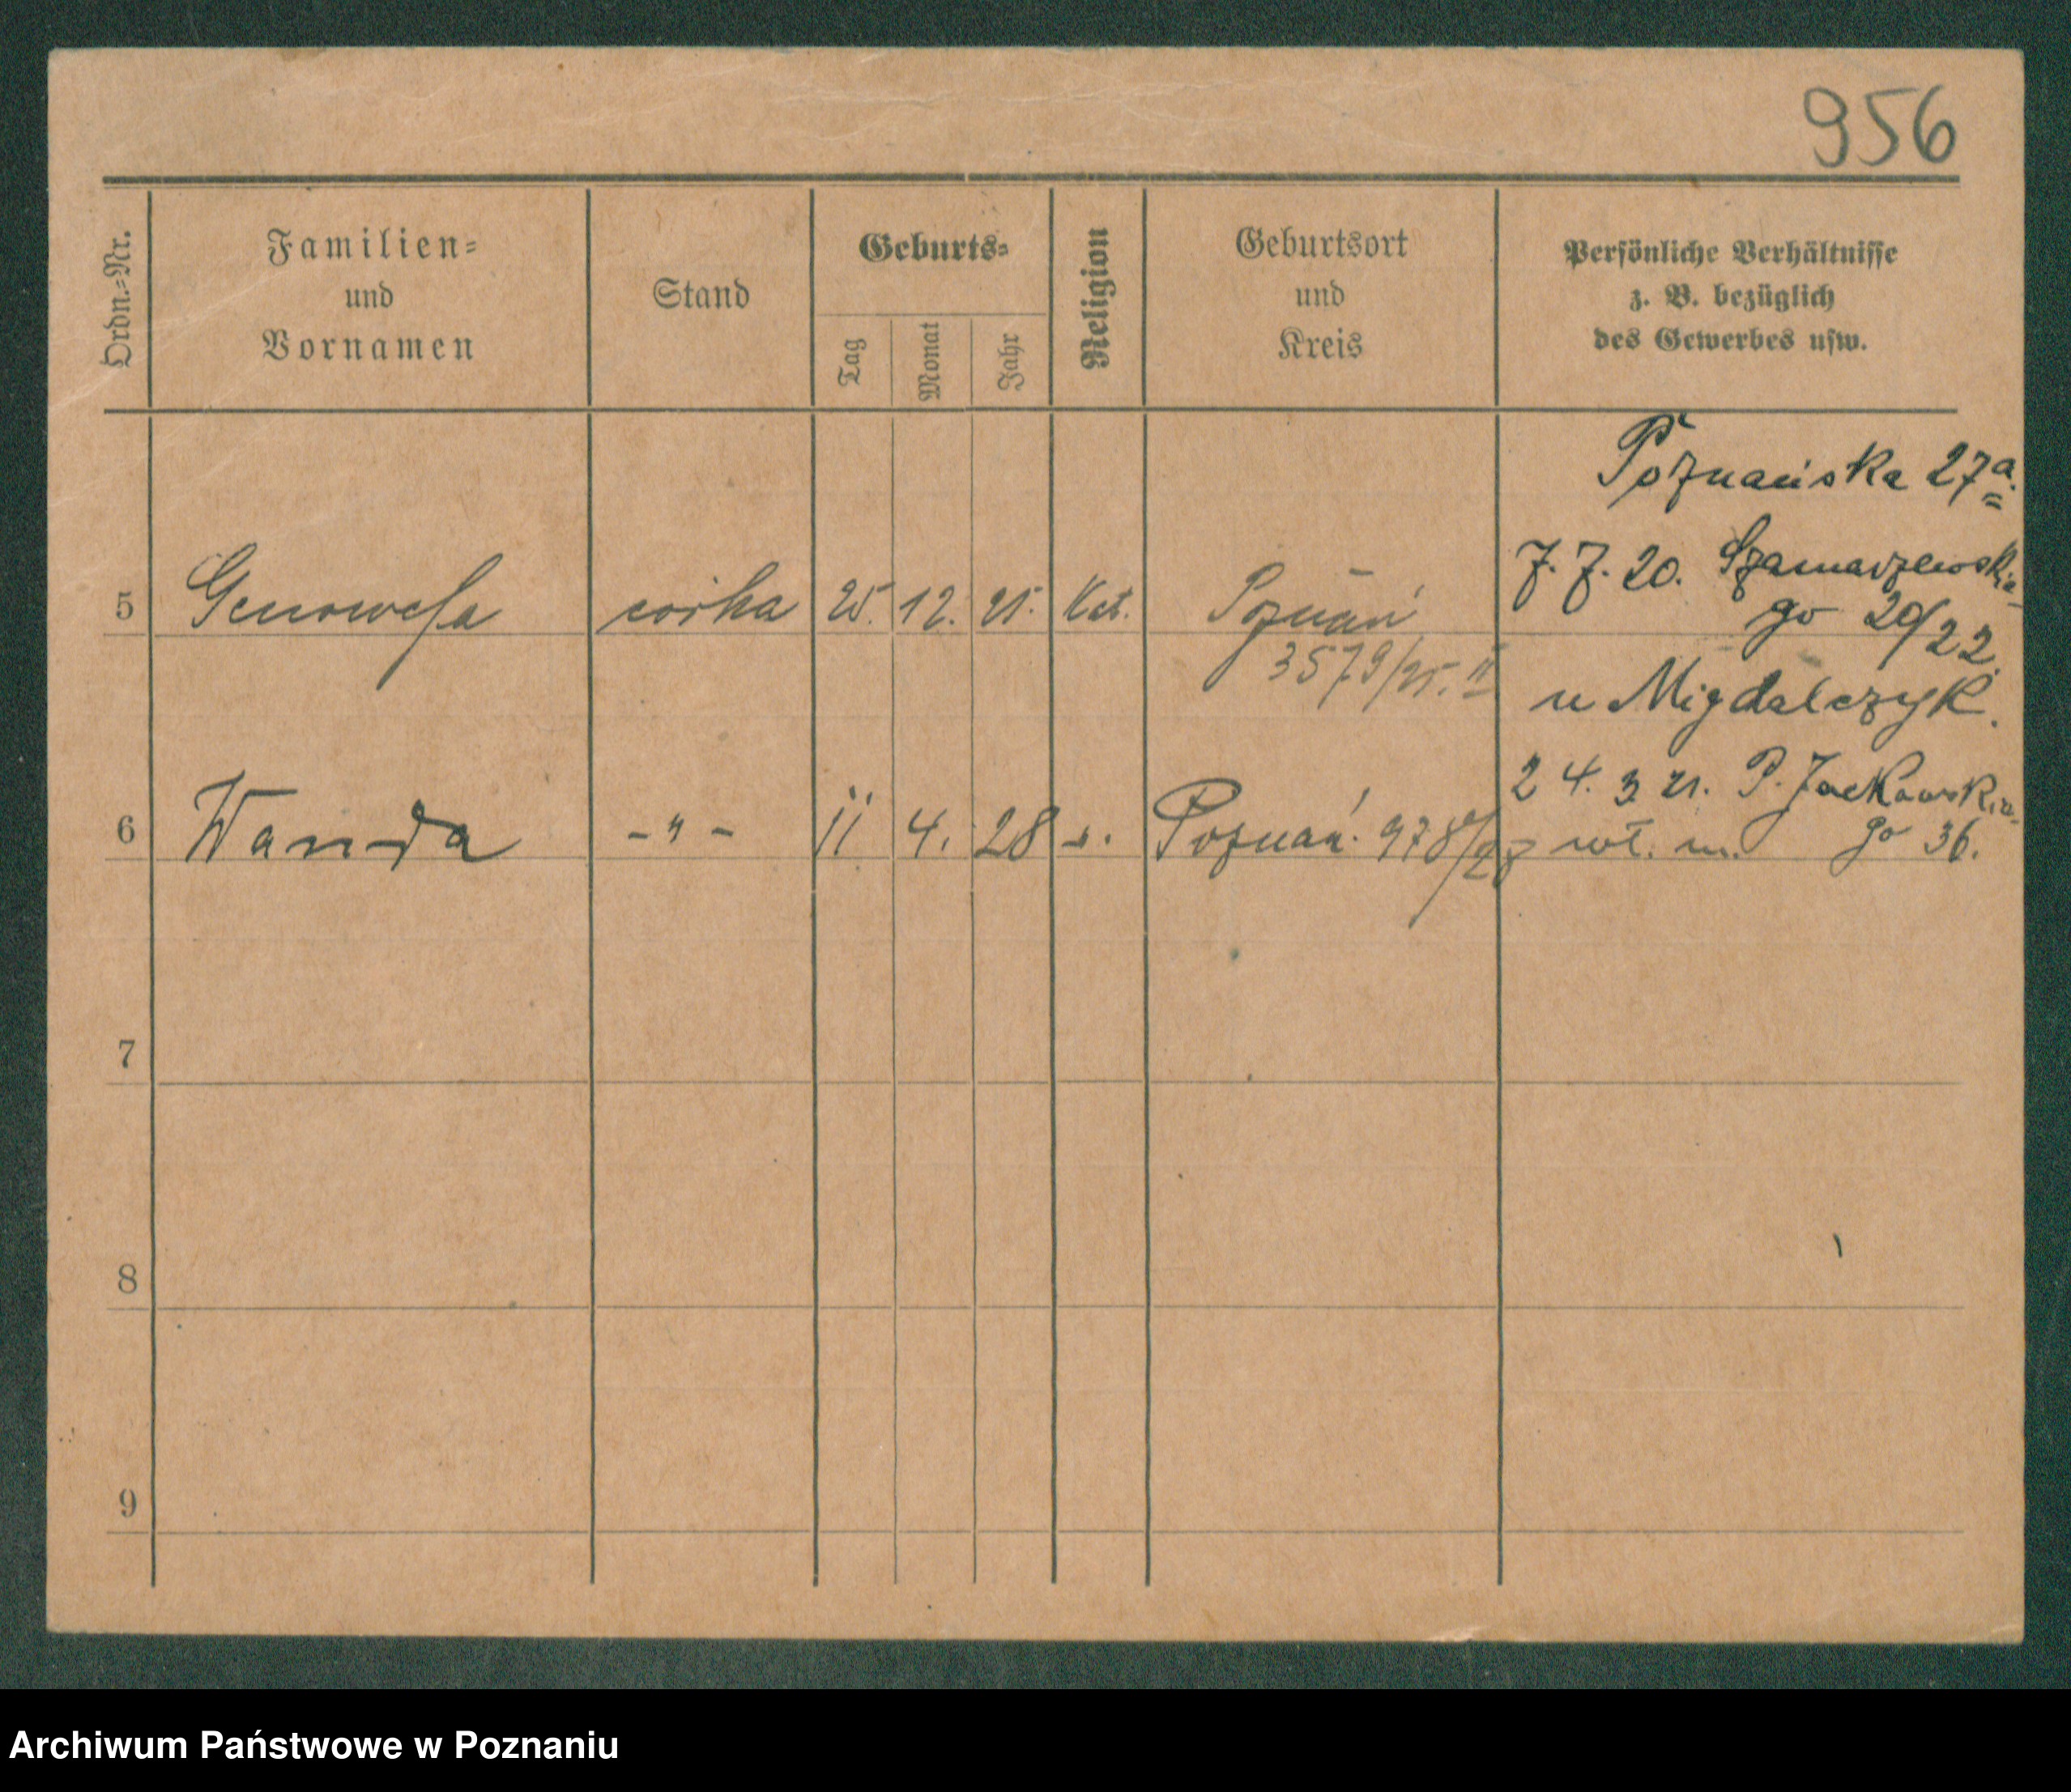 956
Ordn.=Nr.
Familien=
und
Vornamen
Stand
Geburts=
Tag
Monat
Jahr
Religion
Geburtsort
und
Kreis
Persönliche Verhältnisse
z. B. bezüglich
des Gewerbes usw.
Poznańska 27a.
7. 7. 20. Szamarzewskie-
go 20/22.
u Migdalczyk.
5 Genowefa córka 25. 12. 25. Kat. Poznań
3579/25. II
24. 3 21. P. Jackowskie-
go 36.
6 Wanda - " - 11 4. 28 Poznań. 978/28 wł. m.
7
8
9
Archiwum Państwowe w Poznaniu